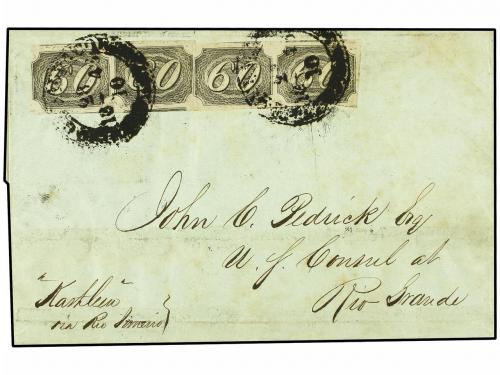 60 60 60 60
John C. Pedrick Esq
U. S. Consul at
Rio Grande
"Kathleen"
via Rio Janeiro